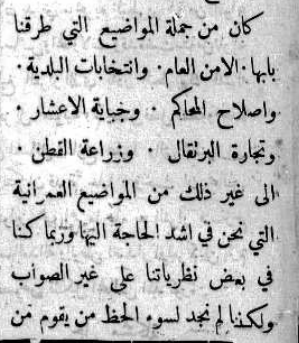 كان من جملة المواضيع التي طرقنا
بابها · الامن العام · وانتخابات البلدية ·
واصلاح المحاكم · وجباية الاعشار ·
وتجارة البرتقال · وزراعة القطن ·
الى غير ذلك من المواضيع العمرانية
التي نحن في اشد الحاجة اليها وربما كنا
في بعض نظرياتنا على غير الصواب
ولكننا لم نجد لسوء الحظ من يقوم من